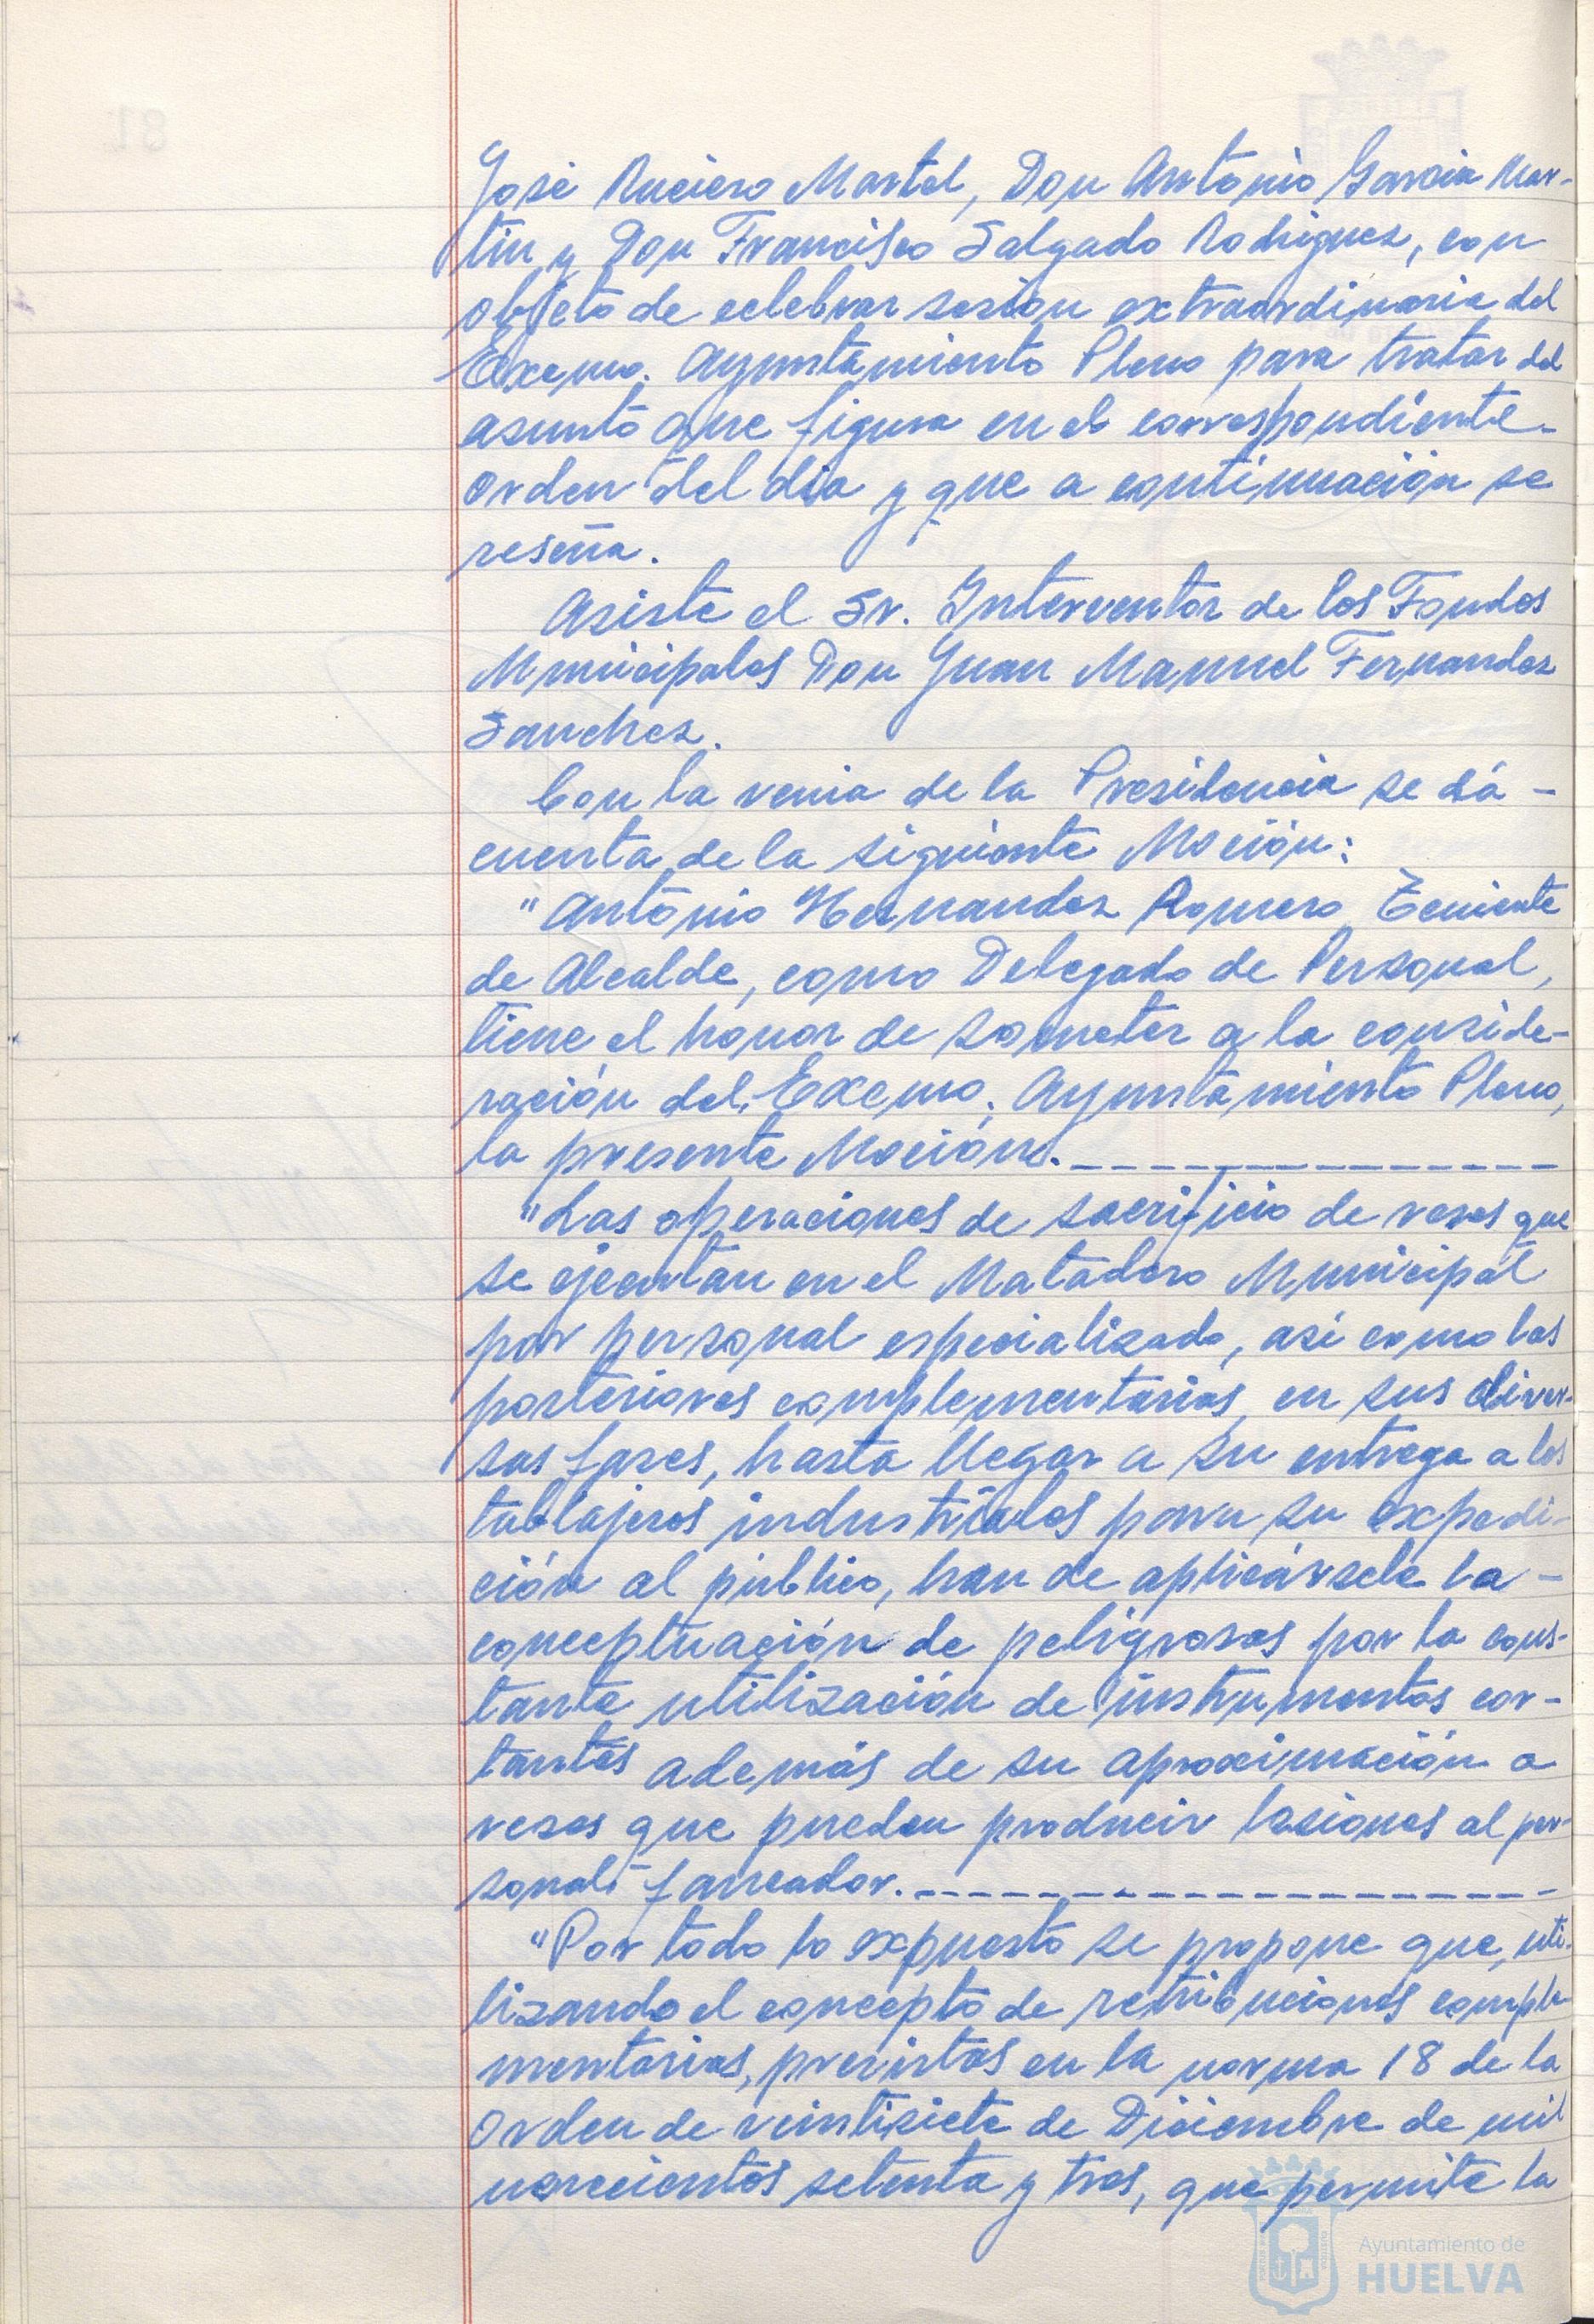 José Ruciero Martel, Don Antonio Garcia Mar-
tin y Don Francisco Salgado Rodriguez, con
objeto de celebrar sesion extraordinaria del
Excmo. Ayuntamiento Pleno para tratar del
asunto que figura en el correspondiente
orden del dia y que a continuación se
reseña.
Asiste el Sr. Interventor de los Fondos
Municipales Don Juan Manuel Fernandez
Sanchez.
Con la venia de la Presidencia se dá -
cuenta de la siguiente Moción:
"Antonio Hernandez Romero, Teniente
de Alcalde, como Delegado de Personal,
tiene el honor de someter a la conside-
ración del Excmo. Ayuntamiento Pleno,
la presente Moción.---------------
"Las operaciones de sacrificio de reses que
se ejecutan en el Matadero Municipal
por personal especializado, asi como las
posteriores complementarias, en sus diver-
sas fases, hasta llegar a su entrega a los
tablajeros industriales para su expedi-
ción al público, han de aplicársele la -
conceptuación de peligrosas por la cons-
tante utilización de instrumentos cor-
tantes además de su aproximación a
reses que pueden producir lesiones al per-
sonal faneador.-------------------
"Por todo lo expuesto se propone que, uti-
lizando el concepto de retribuciones comple-
mentarias, previstas en la norma 18 de la
Orden de veintisiete de Diciembre de mil
novecientos setenta y tres, que permite la
Ayuntamiento de
HUELVA